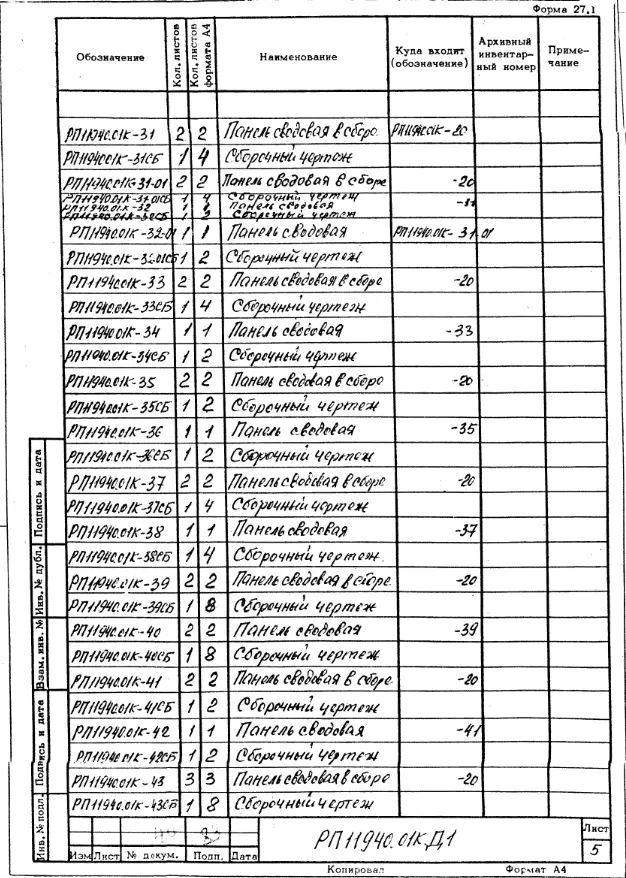 Форма 27.1
Обозначение Кол. листов Кол. листов формата А4 Наименование Куда входит (обозначение) Архивный инвентар-ный номер Приме-чание
РП11940.01К-31 2 2 Панель сводовая в сборе РП11940.01К-20
РП11940.01К-31СБ 1 4 Сборочный чертеж
РП11940.01К-31-01 2 2 Панель сводовая в сборе -20
РП11940.01К-31-01СБ 1 4 Сборочный чертеж
РП11940.01К-32 1 1 Панель сводовая -31
РП11940.01К-32СБ 1 2 Сборочный чертеж
РП11940.01К-32-01 1 1 Панель сводовая РП11940.01К-31-01
РП11940.01К-32-01СБ 1 2 Сборочный чертеж
РП11940.01К-33 2 2 Панель сводовая в сборе -20
РП11940.01К-33СБ 1 4 Сборочный чертеж
РП11940.01К-34 1 1 Панель сводовая -33
РП11940.01К-34СБ 1 2 Сборочный чертеж
РП11940.01К-35 2 2 Панель сводовая в сборе -20
РП11940.01К-35СБ 1 2 Сборочный чертеж
РП11940.01К-36 1 1 Панель сводовая -35
РП11940.01К-36СБ 1 2 Сборочный чертеж
РП11940.01К-37 2 2 Панель сводовая в сборе -20
РП11940.01К-37СБ 1 4 Сборочный чертеж
РП11940.01К-38 1 1 Панель сводовая -37
РП11940.01К-38СБ 1 4 Сборочный чертеж
РП11940.01К-39 2 2 Панель сводовая в сборе -20
РП11940.01К-39СБ 1 8 Сборочный чертеж
РП11940.01К-40 2 2 Панель сводовая -39
РП11940.01К-40СБ 1 8 Сборочный чертеж
РП11940.01К-41 2 2 Панель сводовая в сборе -20
РП11940.01К-41СБ 1 2 Сборочный чертеж
РП11940.01К-42 1 1 Панель сводовая -41
РП11940.01К-42СБ 1 2 Сборочный чертеж
РП11940.01К-43 3 3 Панель сводовая в сборе -20
РП11940.01К-43СБ 1 8 Сборочный чертеж
Подпись и дата
Инв. № дубл.
Взам. инв. №
Подпись и дата
Инв. № подл.
Изм Лист № докум. Подп. Дата
РП11940.01КД1
Лист
5
Копировал Формат А4